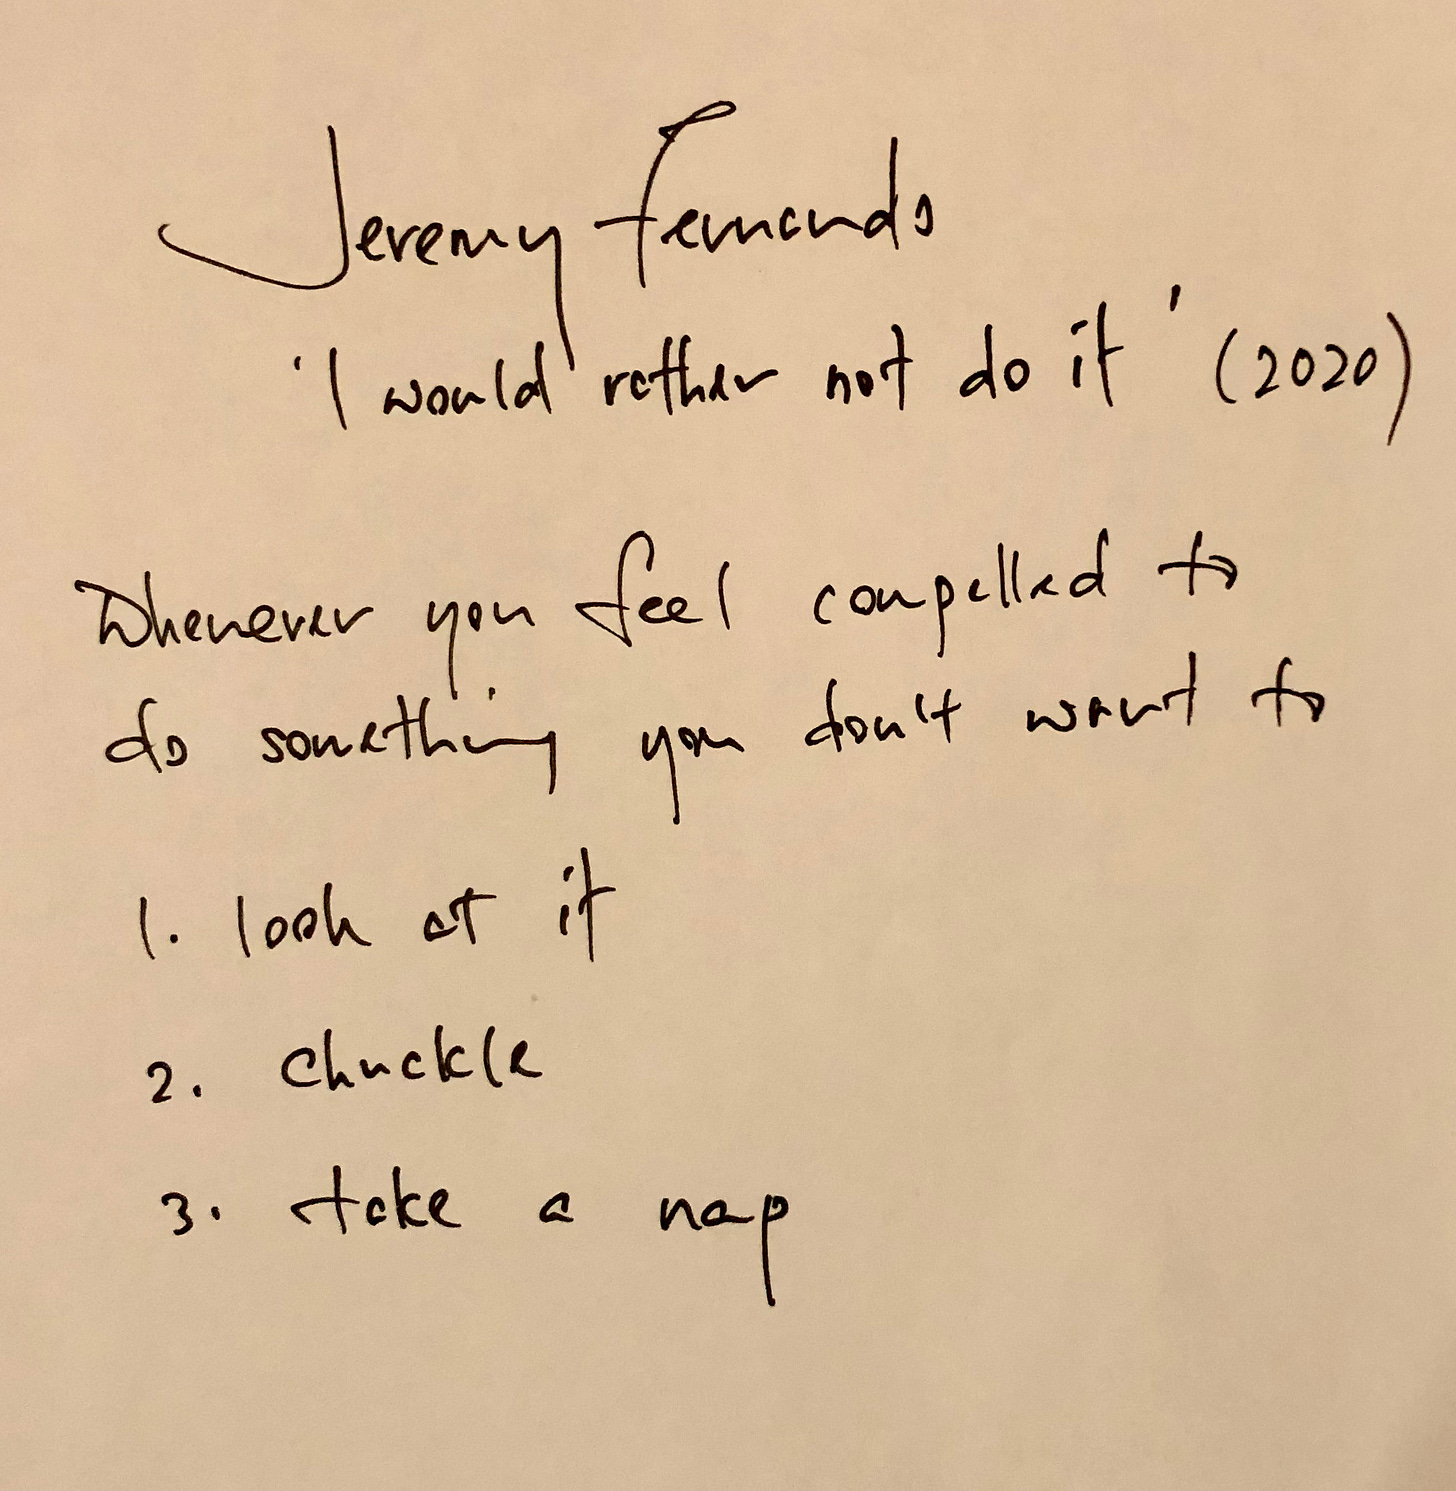 Jeremy Fernando
'I would rather not do it' (2020)
Whenever you feel compelled to
do something you don't want to
1. look at it
2. chuckle
3. take a nap